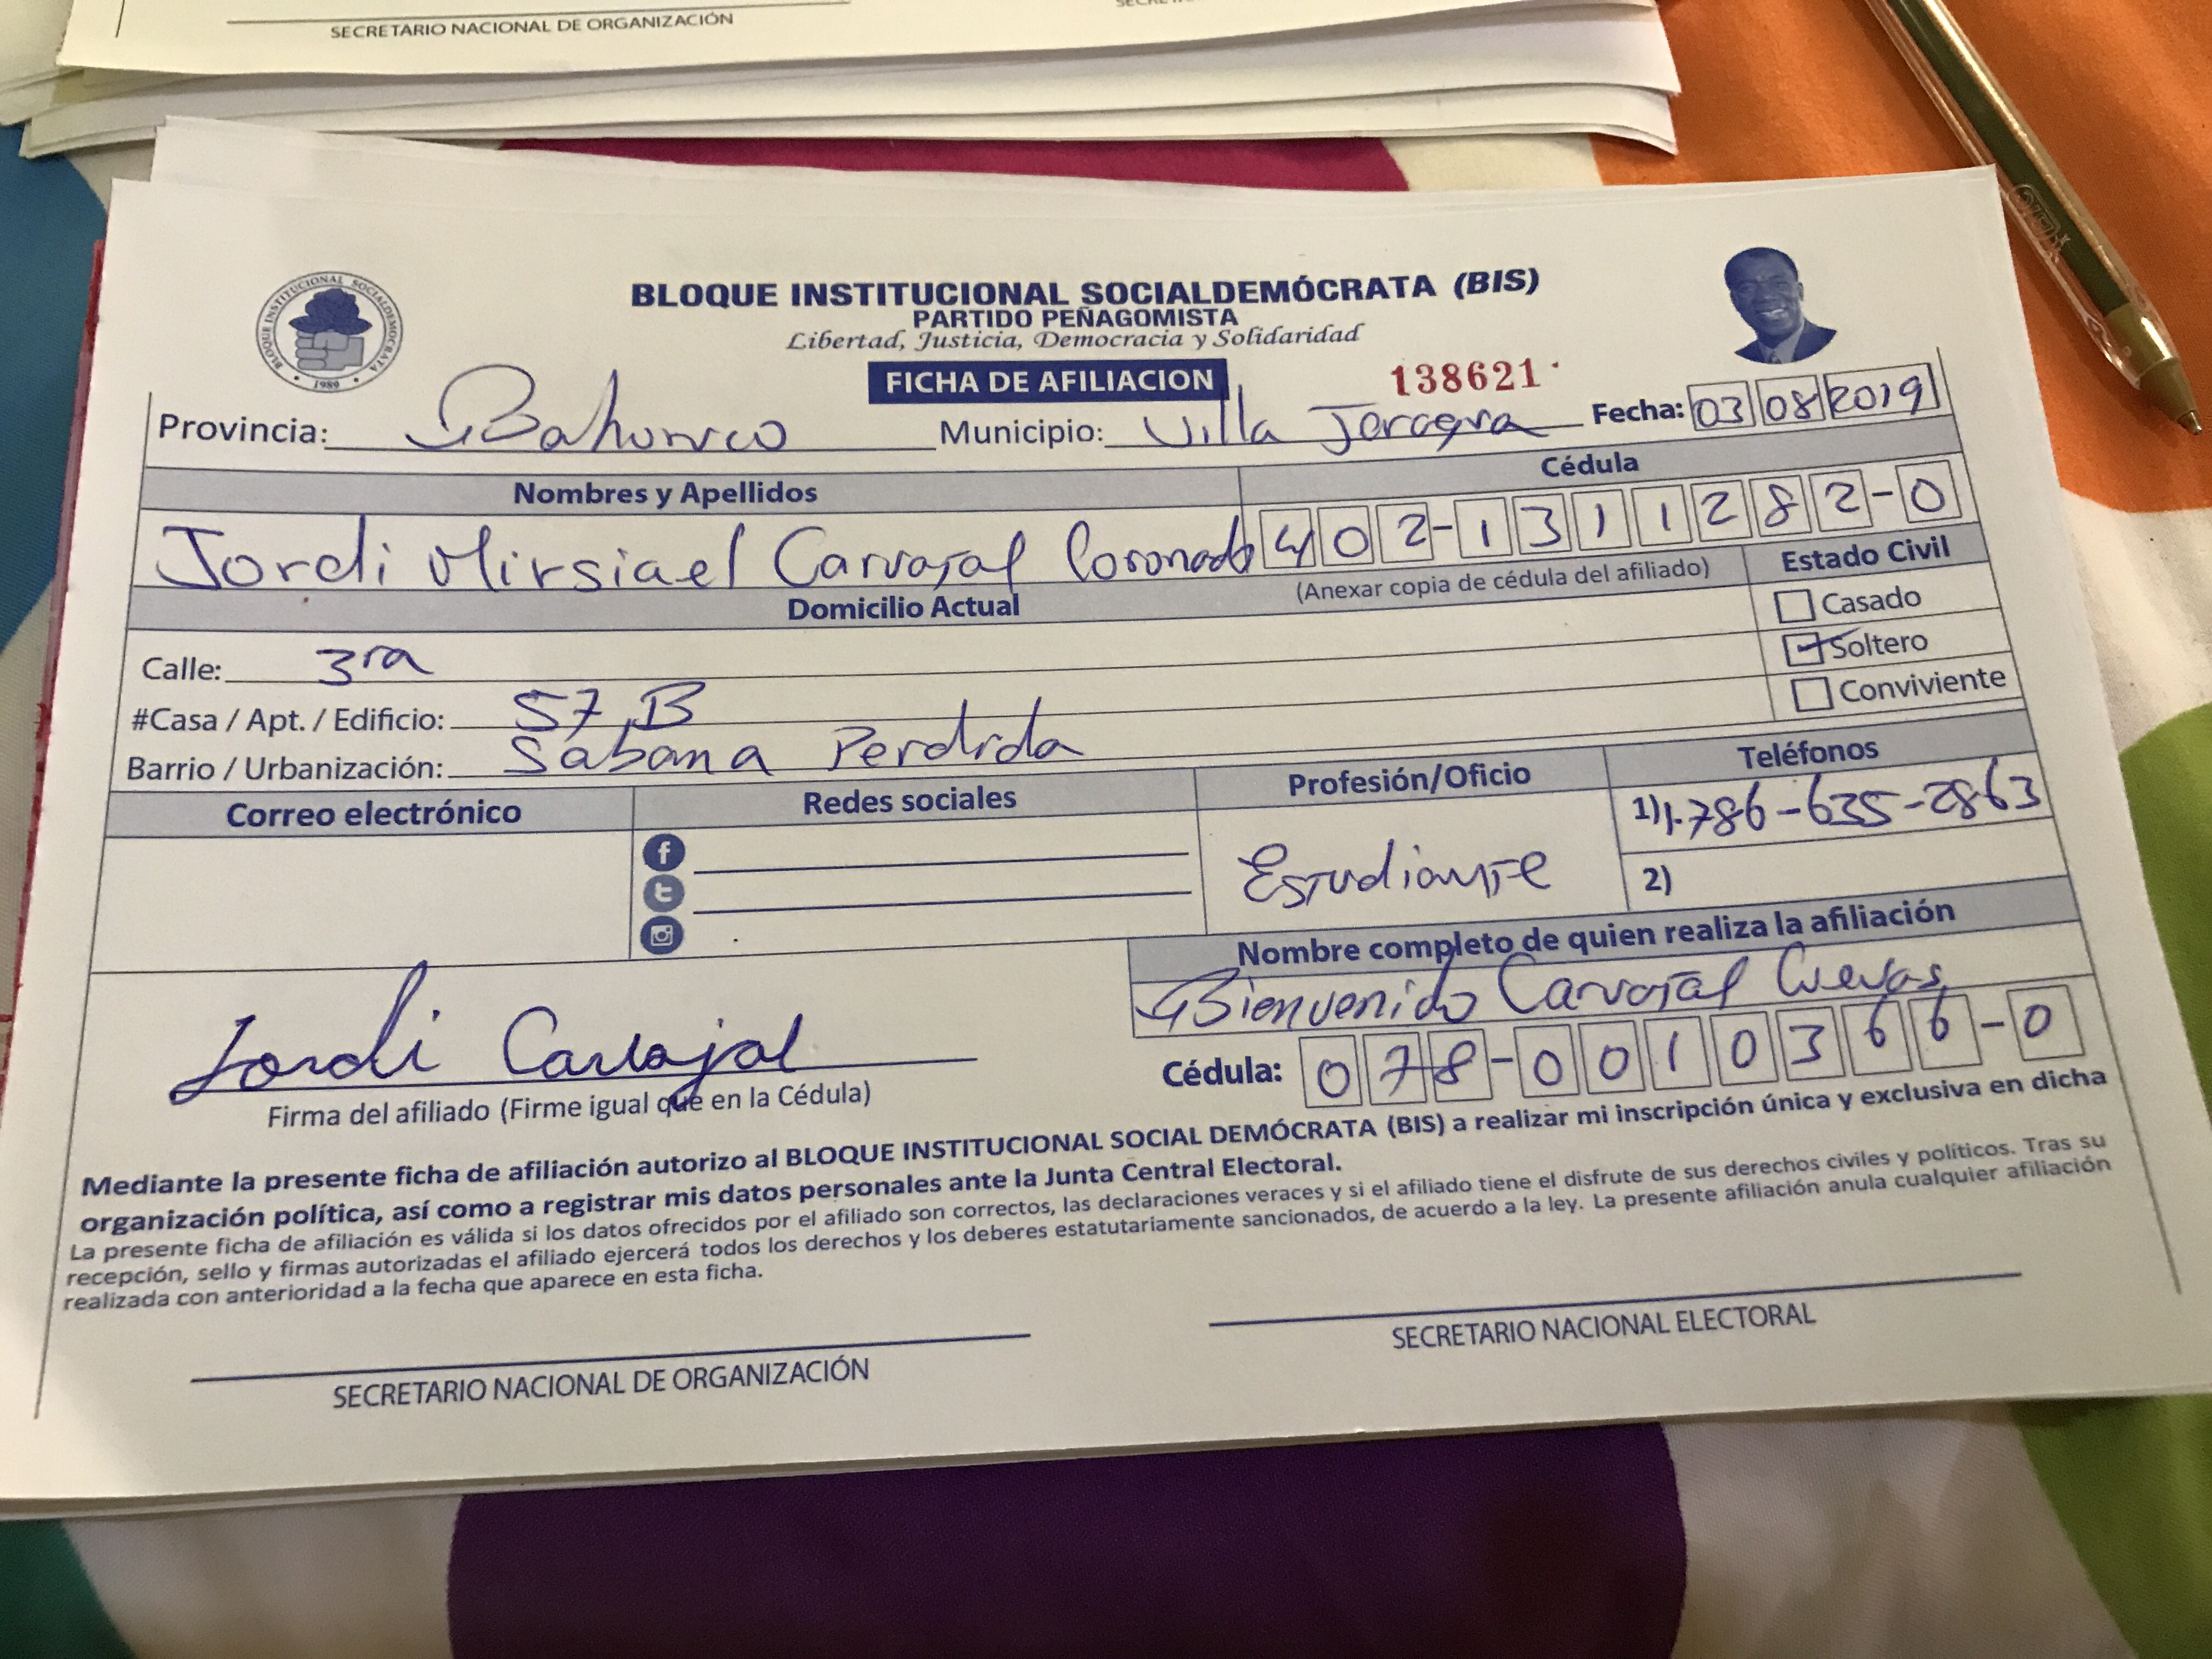 SECRETARIO NACIONAL DE ORGANIZACIÓN
BLOQUE INSTITUCIONAL SOCIALDEMÓCRATA (BIS)
PARTIDO PEÑAGOMISTA
Libertad, Justicia, Democracia y Solidaridad
BLOQUE INSTITUCIONAL SOCIALDEMOCRATA
1989
FICHA DE AFILIACION
138621
Provincia: Bahoruco Municipio: Villa Jaragua Fecha: 03 08 2019
Nombres y Apellidos Cédula
Jordi Mirsiael Carvajal Coronado 402-1311282-0
(Anexar copia de cédula del afiliado)
Domicilio Actual Estado Civil
Casado
Calle: 3ra Soltero
#Casa / Apt. / Edificio: 57 B Conviviente
Barrio / Urbanización: Sabana Perdida
Correo electrónico Redes sociales Profesión/Oficio Teléfonos
1) 1.786-635-2863
Estudiante
2)
Nombre completo de quien realiza la afiliación
Bienvenido Carvajal Cuevas
Jordi Carvajal
Cédula: 078-0010366-0
Firma del afiliado (Firme igual que en la Cédula)
Mediante la presente ficha de afiliación autorizo al BLOQUE INSTITUCIONAL SOCIAL DEMÓCRATA (BIS) a realizar mi inscripción única y exclusiva en dicha
organización política, así como a registrar mis datos personales ante la Junta Central Electoral.
La presente ficha de afiliación es válida si los datos ofrecidos por el afiliado son correctos, las declaraciones veraces y si el afiliado tiene el disfrute de sus derechos civiles y políticos. Tras su
recepción, sello y firmas autorizadas el afiliado ejercerá todos los derechos y los deberes estatutariamente sancionados, de acuerdo a la ley. La presente afiliación anula cualquier afiliación
realizada con anterioridad a la fecha que aparece en esta ficha.
SECRETARIO NACIONAL DE ORGANIZACIÓN
SECRETARIO NACIONAL ELECTORAL